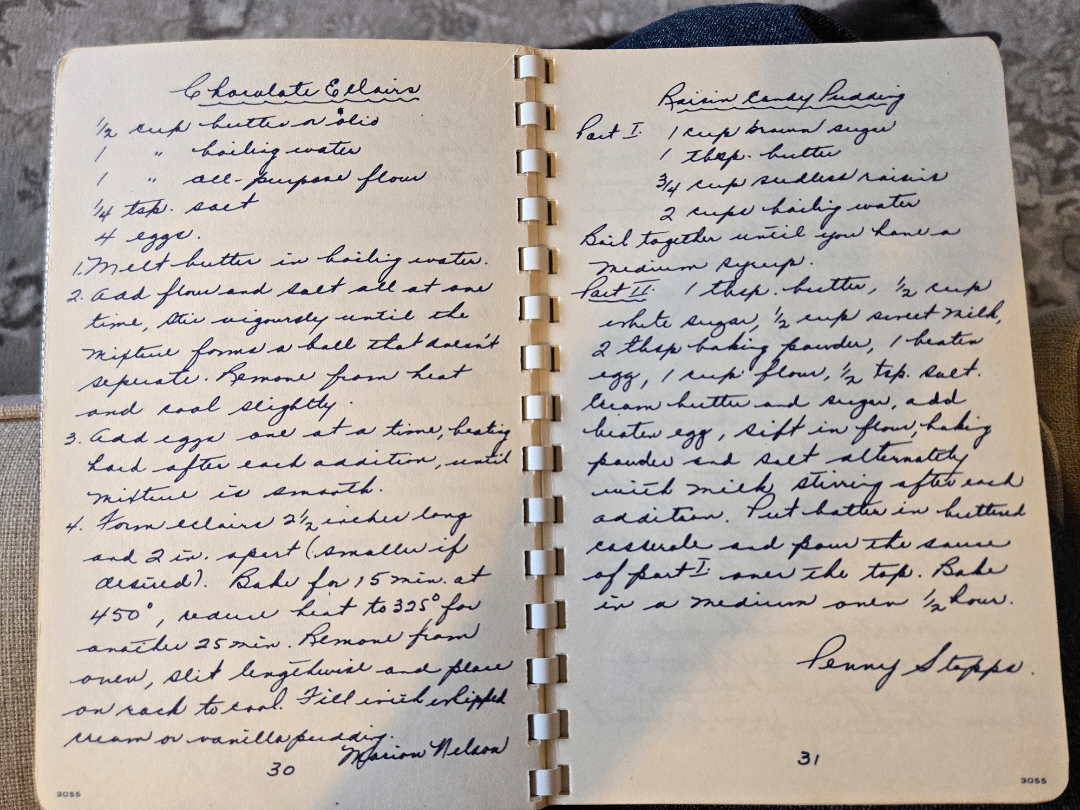 Chocolate Eclairs
1/2 cup butter or oleo
1 " boiling water
1 " all-purpose flour
1/4 tsp. salt
4 eggs.
1. Melt butter in boiling water.
2. Add flour and salt all at one
time, stir vigoursly until the
mixture forms a ball that doesn't
seperate. Remove from heat
and cool slightly.
3. Add eggs one at a time, beating
hard after each addition, until
mixture is smooth.
4. Form eclairs 2 1/2 inches long
and 2 in. apart (smaller if
desired). Bake for 15 min. at
450°, reduce heat to 325° for
another 25 min. Remove from
oven, slit lengthwise and place
on rack to cool. Fill with whipped
cream or vanilla pudding.
Marion Nelson
30
3055
Raisin Candy Pudding
Part I. 1 cup brown sugar
1 tbsp. butter
3/4 cup seedless raisins
2 cups boiling water
Boil together until you have a
medium syrup.
Part II. 1 tbsp. butter, 1/2 cup
white sugar, 1/2 cup sweet milk,
2 tbsp baking powder, 1 beaten
egg, 1 cup flour, 1/2 tsp. salt.
Cream butter and sugar, add
beaten egg, sift in flour, baking
powder and salt alternately
with milk, stirring after each
addition. Put batter in buttered
casserole and pour the sauce
of part I. over the top. Bake
in a medium oven 1/2 hour.
Penny Stopps.
31
3055